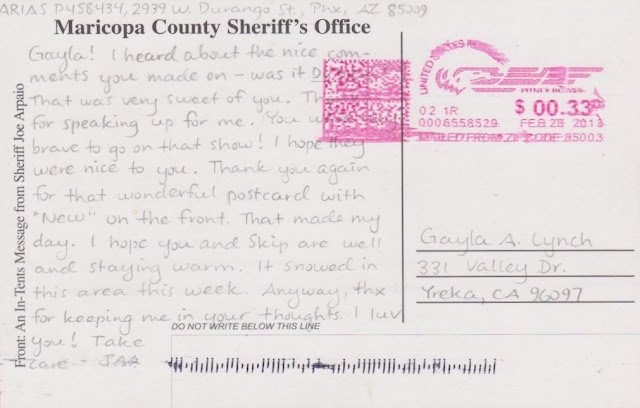 ARIAS P458434, 2939 W. Durango St., Phx, AZ 85009
Maricopa County Sheriff's Office
Front: An In-Tents Message from Sheriff Joe Arpaio
Gayla! I heard about the nice com-
ments you made on - was it
That was very sweet of you.
for speaking up for me. You
brave to go on that show! I hope they
were nice to you. Thank you again
for that wonderful postcard with
"New" on the front. That made my
day. I hope you and Skip are well
and staying warm. It snowed in
this area this week. Anyway, thx
for keeping me in your thoughts. I luv
you! Take
care - JAA
UNITED STATES
PITNEY BOWES
02 1R
$ 00.33
0006558529 FEB 26 2013
MAILED FROM ZIP CODE 85003
Gayla A. Lynch
331 Valley Dr.
Yreka, CA 96097
DO NOT WRITE BELOW THIS LINE